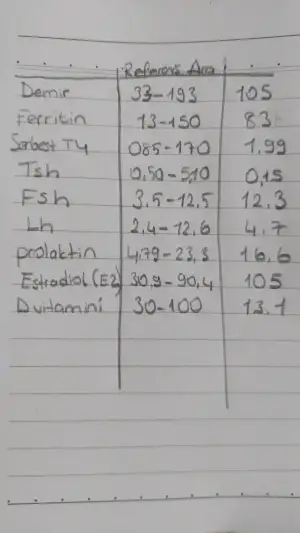 Referans Ara
Demir 33-193 105
Ferritin 13-150 83
Serbest T4 085-170 1,99
Tsh 0,50-5,10 0,15
FSh 3,5-12,5 12.3
Lh 2,4-12,6 4.7
prolaktin 4,79-23,3 16.6
Estradiol (E2) 30,9-90,4 105
D vitamini 30-100 13.1